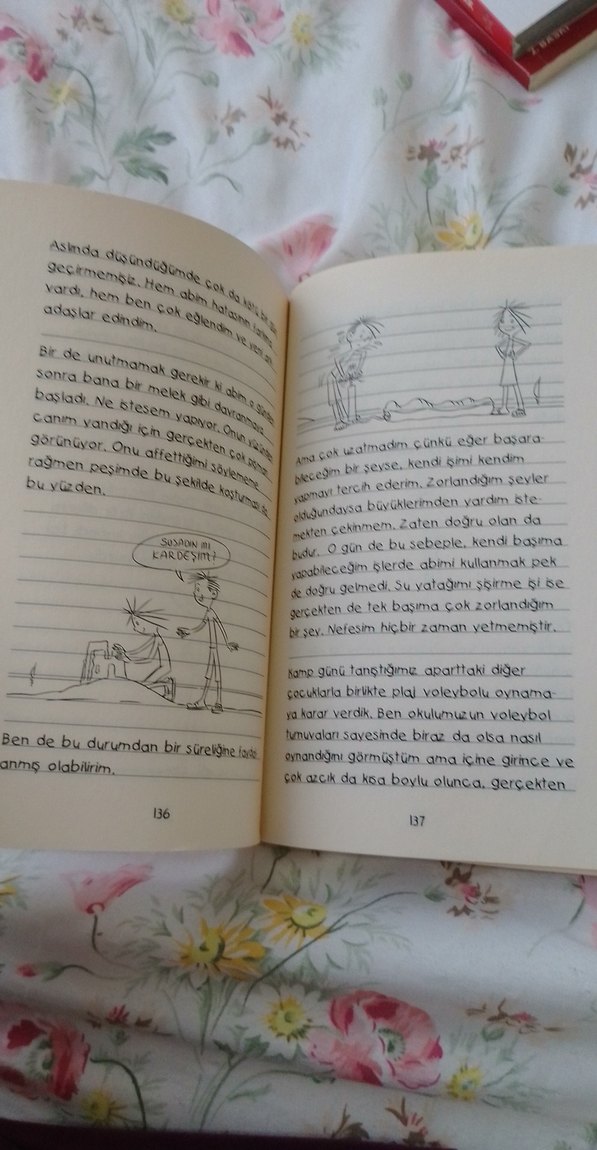 2. BASKI
Aslında düşündüğümde çok da kötü bir
geçirmemişiz. Hem abim hatasının farkına
vardı, hem ben çok eğlendim ve yeni ark
adaşlar edindim.
Bir de unutmamak gerekir ki abim o günden
sonra bana bir melek gibi davranmaya
başladı. Ne istesem yapıyor. Onun yüzünden
canım yandığı için gerçekten çok pişman
görünüyor. Onu affettiğimi söylememe
rağmen peşimde bu şekilde koşturması
bu yüzden.
SUSADIN MI
KARDEŞİM?
Ben de bu durumdan bir süreliğine fayda
anmış olabilirim.
136
Ama çok uzatmadım çünkü eğer başara-
bileceğim bir şeyse, kendi işimi kendim
yapmayı tercih ederim. Zorlandığım şeyler
olduğundaysa büyüklerimden yardım iste-
mekten çekinmem. Zaten doğru olan da
budur. O gün de bu sebeple, kendi başıma
yapabileceğim işlerde abimi kullanmak pek
de doğru gelmedi. Su yatağımı şişirme işi ise
gerçekten de tek başıma çok zorlandığım
bir şey. Nefesim hiçbir zaman yetmemiştir.
Kamp günü tanıştığımız aparttaki diğer
çocuklarla birlikte plaj voleybolu oynama-
ya karar verdik. Ben okulumuzun voleybol
turnuvaları sayesinde biraz da olsa nasıl
oynandığını görmüştüm ama içine girince ve
çok azcık da kısa boylu olunca, gerçekten
137